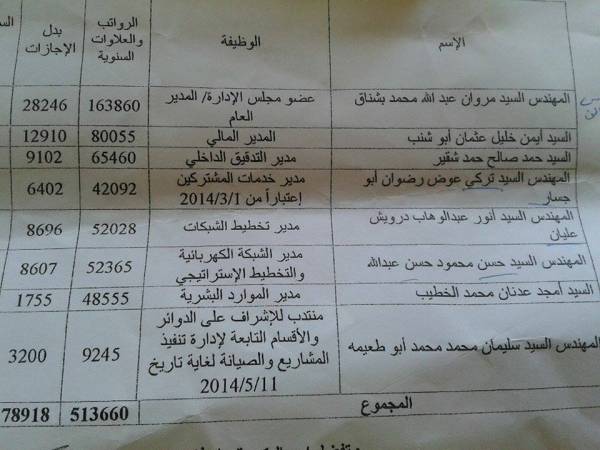 الإسم الوظيفة الرواتب والعلاوات السنوية بدل الإجازات
المهندس السيد مروان عبد الله محمد بشناق عضو مجلس الإدارة/ المدير العام 163860 28246
السيد أيمن خليل عثمان أبو شنب المدير المالي 80055 12910
السيد حمد صالح حمد شقير مدير التدقيق الداخلي 65460 9102
المهندس السيد تركي عوض رضوان أبو جسار مدير خدمات المشتركين إعتباراً من 2014/3/1 42092 6402
المهندس السيد أنور عبدالوهاب درويش عليان مدير تخطيط الشبكات 52028 8696
المهندس السيد حسن محمود حسن عبدالله مدير الشبكة الكهربائية والتخطيط الإستراتيجي 52365 8607
السيد أمجد عدنان محمد الخطيب مدير الموارد البشرية 48555 1755
المهندس السيد سليمان محمد محمد أبو طعيمه منتدب للإشراف على الدوائر والأقسام التابعة لإدارة تنفيذ المشاريع والصيانة لغاية تاريخ 2014/5/11 9245 3200
المجموع 513660 78918